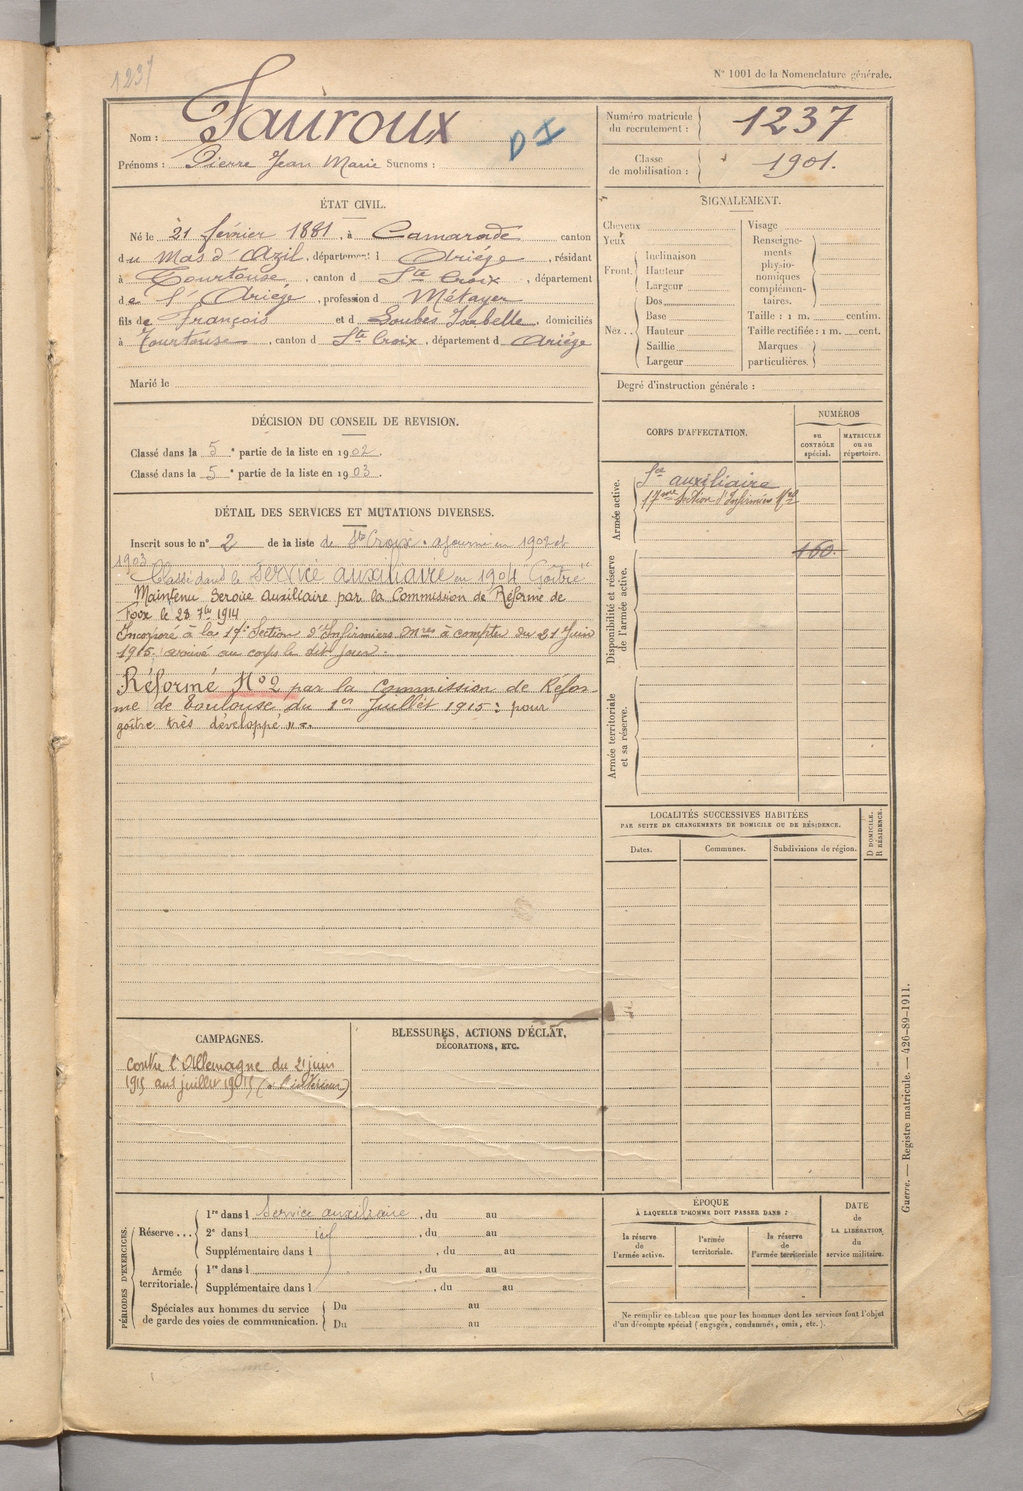 1237
N° 1001 de la Nomenclature générale.
Nom : Fauroux
D I
Prénoms : Pierre Jean Marie Surnoms :
Numéro matricule du recrutement : 1237
Classe de mobilisation : 1901.
ÉTAT CIVIL.
Né le 21 février 1881, à Camarade canton
du Mas d'Azil, département d Ariège, résidant
à Tourtouse, canton d Ste Croix, département
de l'Ariège, profession d Métayer
fils de François et d Loubes Isabelle, domiciliés
à Tourtouse, canton d Ste Croix, département d Ariège
Marié le
SIGNALEMENT.
Cheveux
Yeux
Front. Inclinaison
Hauteur
Largeur
Nez.. Dos
Base
Hauteur
Saillie
Largeur
Visage
Renseignements physionomiques complémentaires.
Taille : 1 m. centim.
Taille rectifiée : 1 m. cent.
Marques particulières.
Degré d'instruction générale :
DÉCISION DU CONSEIL DE REVISION.
Classé dans la 5e partie de la liste en 1902.
Classé dans la 5e partie de la liste en 1903.
DÉTAIL DES SERVICES ET MUTATIONS DIVERSES.
Inscrit sous le n° 2 de la liste de Ste Croix. ajourné en 1902 et
1903
Classé dans le Service auxiliaire en 1904 "Goître"
Maintenu Service Auxiliaire par la Commission de Réforme de
Foix le 23 7bre 1914
Incorporé à la 17e Section d'Infirmiers Mres à compter du 21 Juin
1915. arrivé au corps le dit jour.
Réformé N° 2 par la Commission de Réfor-
me de Toulouse du 1er Juillet 1915 : pour
goître très développé "
CORPS D'AFFECTATION.
NUMÉROS
au CONTRÔLE spécial.
MATRICULE ou au répertoire.
Armée active.
Sce auxiliaire
17ème Section d'Infirmiers Mres
160.
Disponibilité et réserve de l'armée active.
Armée territoriale et sa réserve.
LOCALITÉS SUCCESSIVES HABITÉES
PAR SUITE DE CHANGEMENTS DE DOMICILE OU DE RÉSIDENCE.
Dates.
Communes.
Subdivisions de région.
D DOMICILE.
R RÉSIDENCE.
CAMPAGNES.
Contre l'Allemagne du 21 juin
1915 au 1 juillet 1915 (à l'intérieur)
BLESSURES, ACTIONS D'ÉCLAT,
DÉCORATIONS, ETC.
PÉRIODES D'EXERCICES.
Réserve ... 1re dans l Service auxiliaire, du au
2e dans l id, du au
Supplémentaire dans l , du au
Armée territoriale. 1re dans l , du au
Supplémentaire dans l , du au
Spéciales aux hommes du service de garde des voies de communication. Du au
Du au
ÉPOQUE
À LAQUELLE L'HOMME DOIT PASSER DANS :
la réserve de l'armée active.
l'armée territoriale.
la réserve de l'armée territoriale
DATE de LA LIBÉRATION du service militaire.
Ne remplir ce tableau que pour les hommes dont les services font l'objet
d'un décompte spécial (engagés, condamnés, omis, etc.).
Guerre. — Registre matricule. — 426-89-1911.